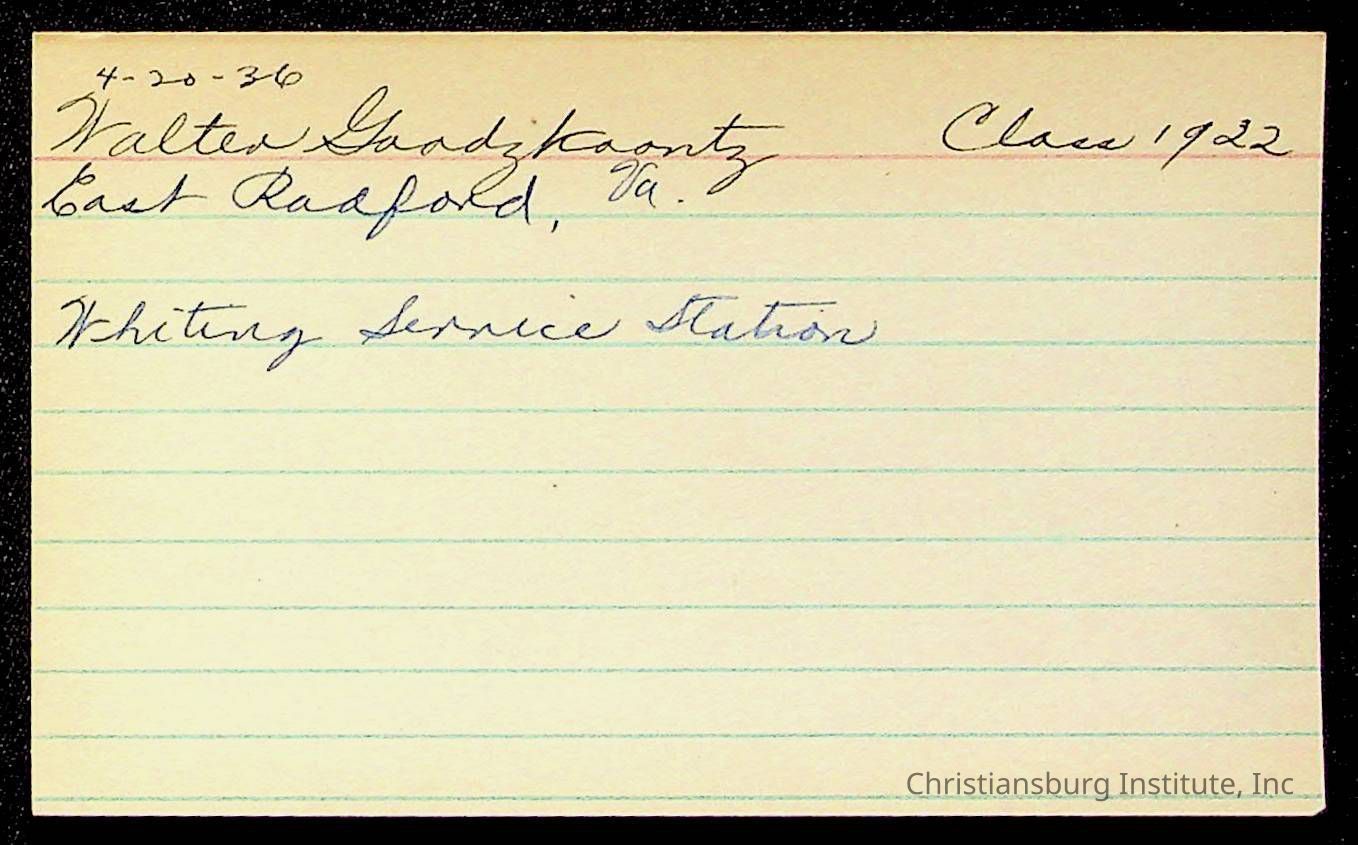 4-20-36
Walter Goodzkoontz Class 1922
East Radford, Va.
Whiting Service Station
Christiansburg Institute, Inc